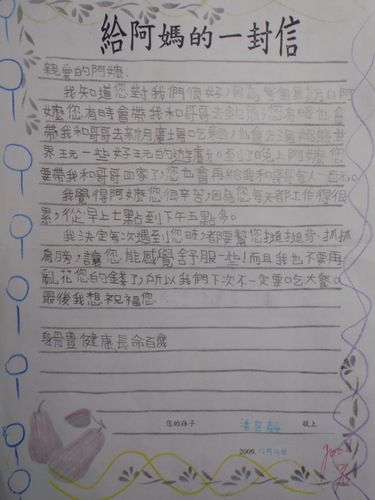 給阿媽的一封信
親愛的阿嬤:
我知道您對我們很好,因為
嬤您有時會帶我和哥哥去釣
帶我和哥哥去新月廣場吃東西,也會去湯姆熊世
界玩一些好玩的遊戲。到了晚上阿嬤您
要帶我和哥哥回家了,您也會再給我和哥哥每人一百元。
我覺得阿嬤您很辛苦,因為您每天都工作得很
累,從早上七點到下午五點多。
我決定每次遇到您時,都要幫您搥搥背、抓抓
肩膀,讓您能感覺舒服一些!而且我也不要再
亂花您的錢了,所以我們下次不一定要吃大餐。
最後我想祝福您
身體健康長命百歲
您的孫子 敬上
2009.
good